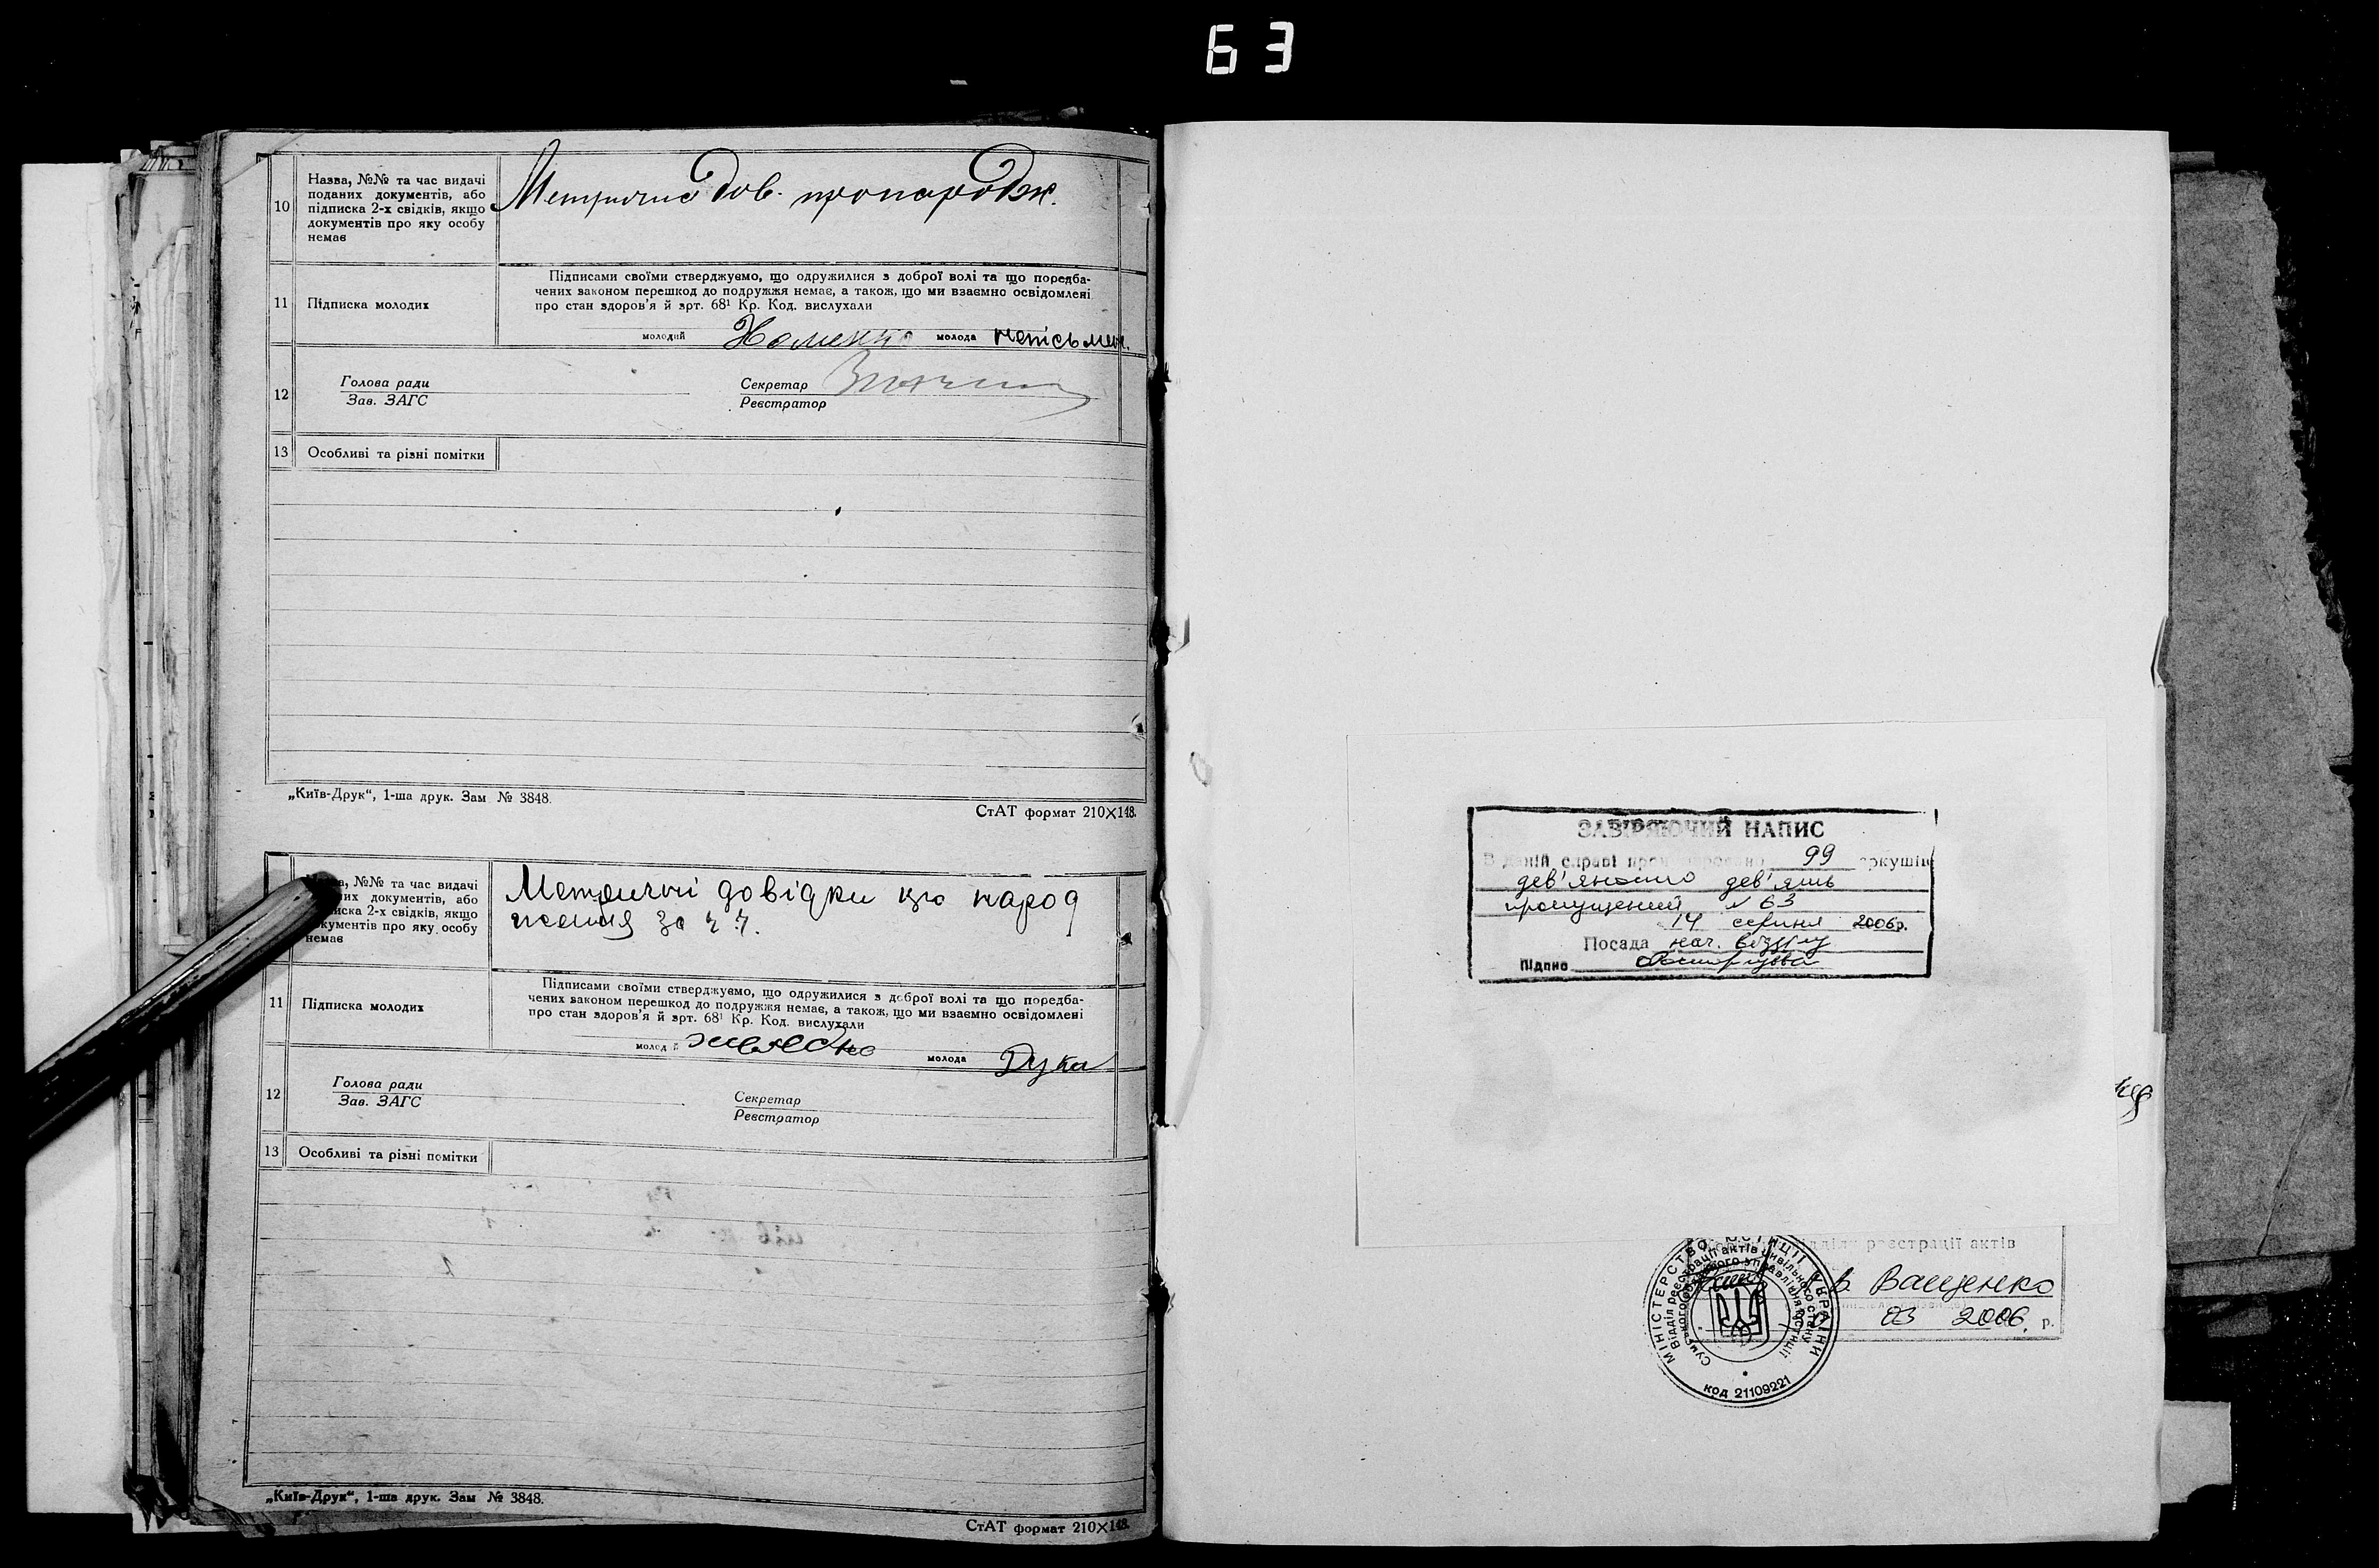 63
10
Назва, №№ та час видачі
поданих документів, або
підписка 2-х свідків, якщо
документів про яку особу
немає
Метрична дов. про народж.
11
Підписка молодих
Підписами своїми стверджуємо, що одружилися з доброї волі та що поредба-
чених законом перешкод до подружжя немає, а також, що ми взаємно освідомлені
про стан здоров'я й арт. 68¹ Кр. Код. вислухали
молодий
молода непісьмен.
12
Голова ради
Зав. ЗАГС
Секретар
Реєстратор
13
Особливі та різні помітки
„Київ-Друк“, 1-ша друк. Зам № 3848.
СтАТ формат 210×148.
№№ та час видачі
документів, або
2-х свідків, якщо
документів про яку особу
немає
Метричні довідки про народ
ження за
11
Підписка молодих
Підписами своїми стверджуємо, що одружилися з доброї волі та що поредба-
чених законом перешкод до подружжя немає, а також, що ми взаємно освідомлені
про стан здоров'я й арт. 68¹ Кр. Код. вислухали
молодий
молода Дука
12
Голова ради
Зав. ЗАГС
Секретар
Реєстратор
13
Особливі та різні помітки
„Київ-Друк“, 1-ша друк. Зам № 3848.
СтАТ формат 210×148.
ЗАВІРЯЮЧИЙ НАПИС
В даній справі 99 аркушів
дев'яносто дев'ять
пропущений № 63
14 серпня 2006р.
Посада нач. відділу
Підпис
реєстрації актів
В. Ващенко
03 2006 р.
МІНІСТЕРСТВО ЮСТИЦІЇ УКРАЇНИ
Відділ реєстрації актів цивільного стану
Сумського обласного управління юстиції
код 21109221